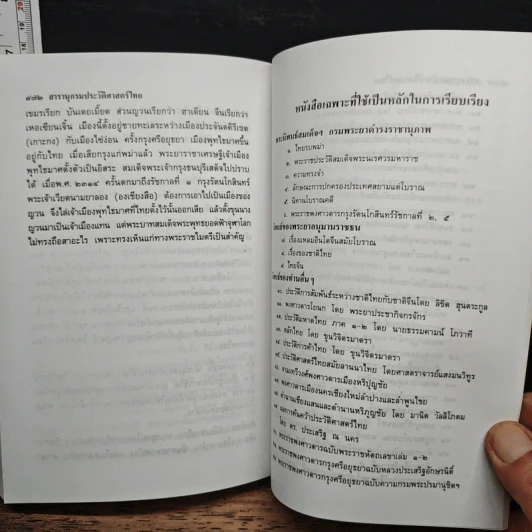 ๔๗๒ สารานุกรมประวัติศาสตร์ไทย
เขมรเรียก บันเตยเมี้ยด ส่วนญวนเรียกว่า ฮาเตียน จีนเรียกว่า
เหอเซียนเจิ้น เมืองนี้ตั้งอยู่ชายทะเลระหว่างเมืองประจันตคิรีเขต
(เกาะกง) กับเมืองไซ่ง่อน ครั้งกรุงศรีอยุธยา เมืองพุทไธมาศขึ้น
อยู่กับไทย เมื่อเสียกรุงแก่พม่าแล้ว พระยาราชาเศรษฐีเจ้าเมือง
พุทไธมาศตั้งตัวเป็นอิสระ สมเด็จพระเจ้ากรุงธนบุรีเสด็จไปปราบ
ได้ เมื่อพ.ศ. ๒๓๑๔ ครั้นตกมาถึงรัชกาลที่ ๑ กรุงรัตนโกสินทร์
พระเจ้าเวียดนามยาลอง (องเชียงสือ) ต้องการเอาไปเป็นเมืองของ
ญวน จึงไล่เจ้าเมืองพุทไธมาศที่ไทยตั้งไว้นั้นออกเสีย แล้วตั้งขุนนาง
ญวนมาเป็นเจ้าเมืองแทน แต่พระบาทสมเด็จพระพุทธยอดฟ้าจุฬาโลก
ไม่ทรงถือสาอะไร เพราะทรงเห็นแก่ทางพระราชไมตรีเป็นสำคัญ
หนังสือเฉพาะที่ใช้เป็นหลักในการเรียบเรียง
พระนิพนธ์สมเด็จฯ กรมพระยาดำรงราชานุภาพ
๑. ไทยรบพม่า
๒. พระราชประวัติสมเด็จพระนเรศวรมหาราช
๓. ความทรงจำ
๔. ลักษณะการปกครองประเทศสยามแต่โบราณ
๕. นิทานโบราณคดี
๖. พระราชพงศาวดารกรุงรัตนโกสินทร์รัชกาลที่ ๒, ๕
ของพระยาอนุมานราชธน
เรื่องแหลมอินโดจีนสมัยโบราณ
เรื่องของชาติไทย
๙. ไทยจีน
ของท่านอื่น ๆ
๑๐. ประวัติการสัมพันธ์ระหว่างชาติไทยกับชาติจีนโดย ลิขิต ฮุนตระกูล
พงศาวดารโยนก โดย พระยาประชากิจกรจักร
ประวัติมหาดไทย ภาค ๑-๒ โดย นายธรรมคามน์ โภวาที
หลักไทย โดย ขุนวิจิตรมาตรา
ประวัติการค้าไทย โดย ขุนวิจิตรมาตรา
ประวัติศาสตร์ไทยสมัยลานนาไทย โดยศาสตราจารย์แสงมนวิทูร
จามเทวีวงศ์พงศาวดารเมืองหริปุญชัย
พงศาวดารเมืองนครเชียงใหม่ลำปางและลำพูนไชย
ตำนานเชียงแสนและตำนานหริภุญชัย โดย มานิต วัลลิโภดม
ผลการค้นคว้าประวัติศาสตร์ไทย
โดย ดร. ประเสริฐ ณ นคร
พระราชพงศาวดารฉบับพระราชหัตถเลขาเล่ม ๑-๒
พระราชพงศาวดารกรุงศรีอยุธยาฉบับหลวงประเสริฐอักษรนิติ์
พระราชพงศาวดารกรุงศรีอยุธยาฉบับความกรมพระปรมานุชิตฯ